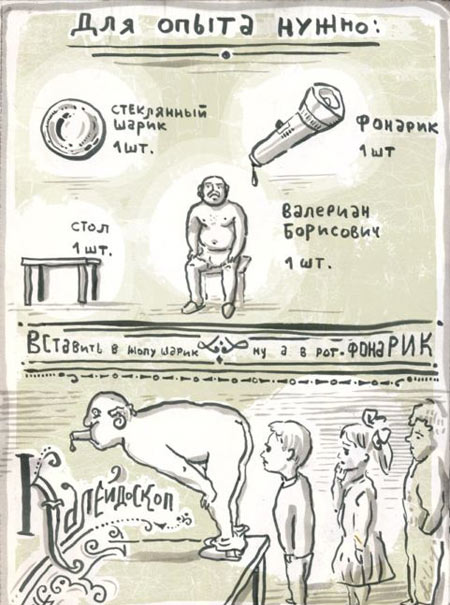 Для опыта нужно:
стеклянный
шарик
1 шт.
Фонарик
1 шт
стол
1 шт.
Валериан
Борисович
1 шт.
Вставить в жопу шарик ну а в рот - фонарик
Калейдоскоп